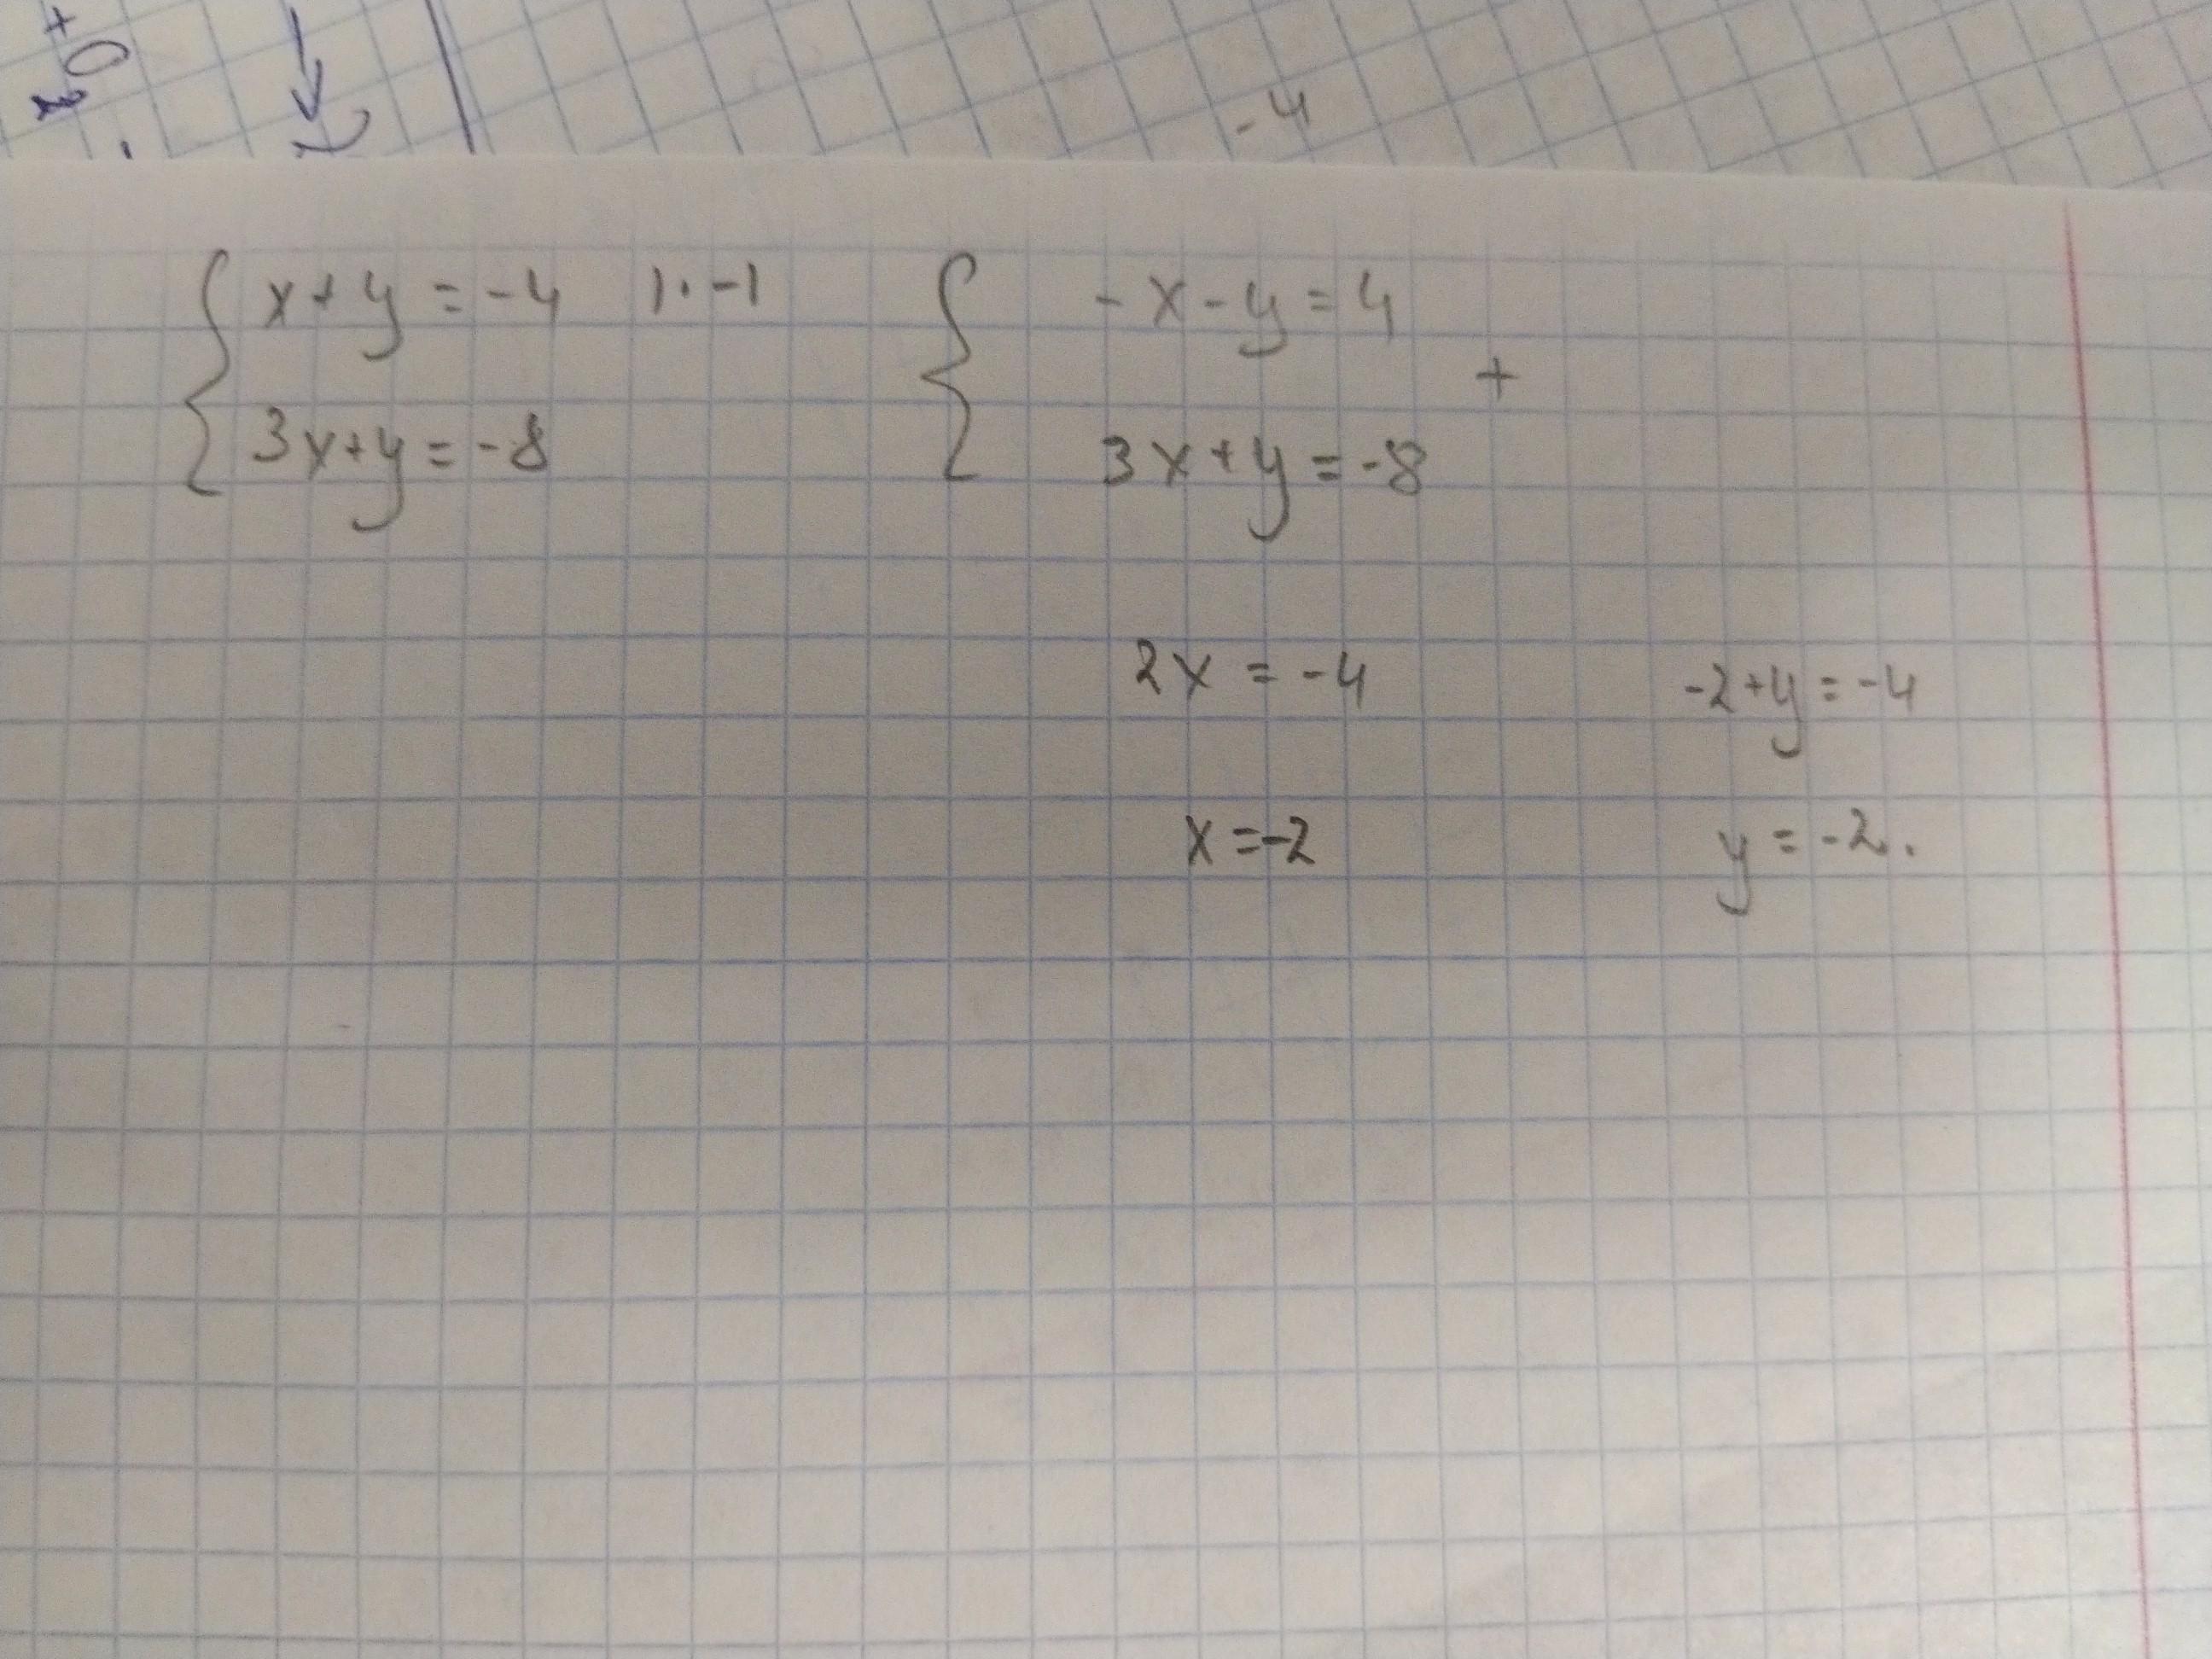 -4
{ x+y=-4 |·-1
3x+y=-8
{ -x-y=4
+
3x+y=-8
2x=-4
x=-2
-2+y=-4
y=-2.